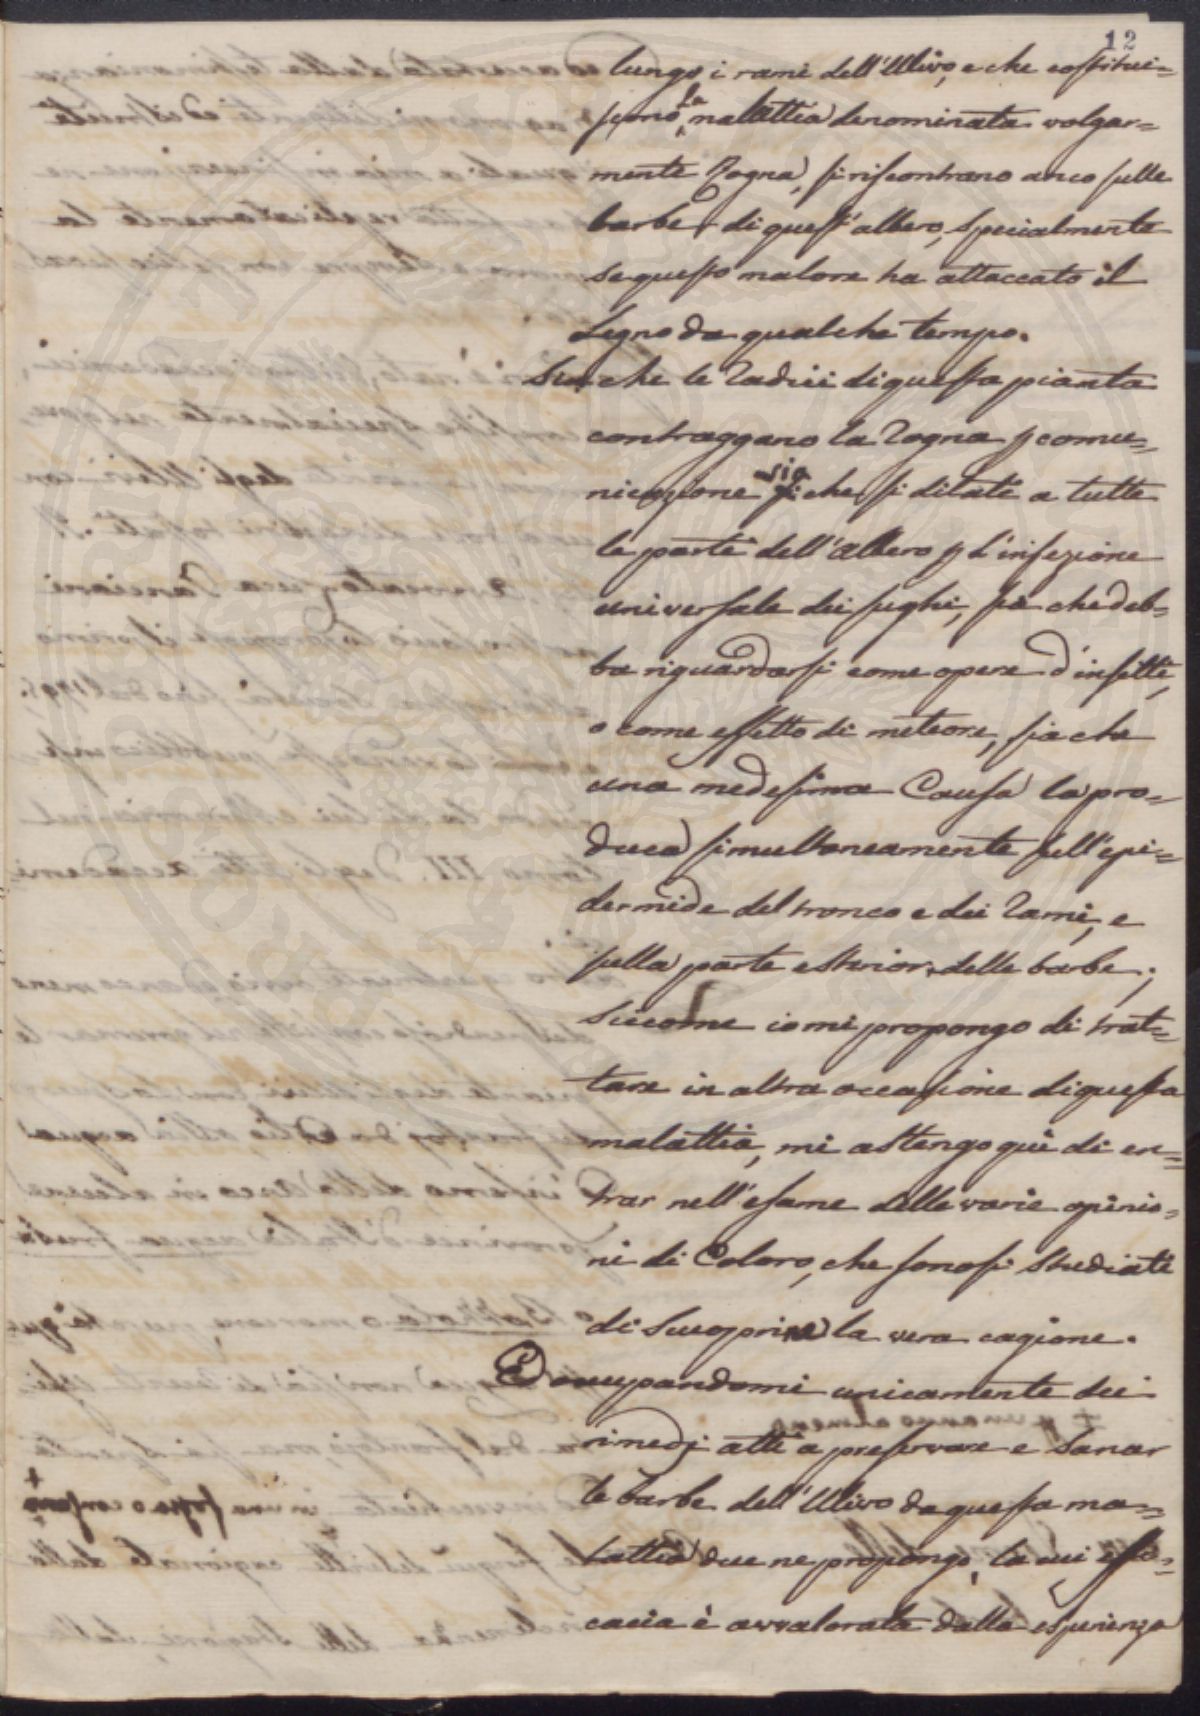 12
lungo i rami dell'Ulivo, e che costitui=
scono la malattia denominata volgar=
mente Rogna, si riscontrano anco sulle
barbe di quest'albero, specialmente
se questo malore ha attaccato il
Legno da qualche tempo.
Sia che le Radici di questa pianta
contraggano la Rogna p comu=
nicazione sia che si dilati a tutte
le parti dell'Albero p L'infezione
universale dei sughi, sia che deb=
ba riguardarsi come opera d'insetti,
o come effetto di meteore, sia che
una medesima Causa la pro=
duca simultaneamente sull'epi=
dermide del tronco e dei Rami, e
sulla parte esterior delle barbe;
Siccome io mi propongo di trat=
tare in altra occasione di questa
malattia, mi astengo quì di en=
trar nell'esame delle varie opinio=
ni di Coloro, che sonosi studiati
di scuoprire la vera cagione.
Ed occupandomi unicamente dei
rimedj atti a preservare e sanar
le barbe dell'Ulivo da questa ma=
lattia due ne propongo, la cui effi=
cacia è avvalorata dalla esperienza